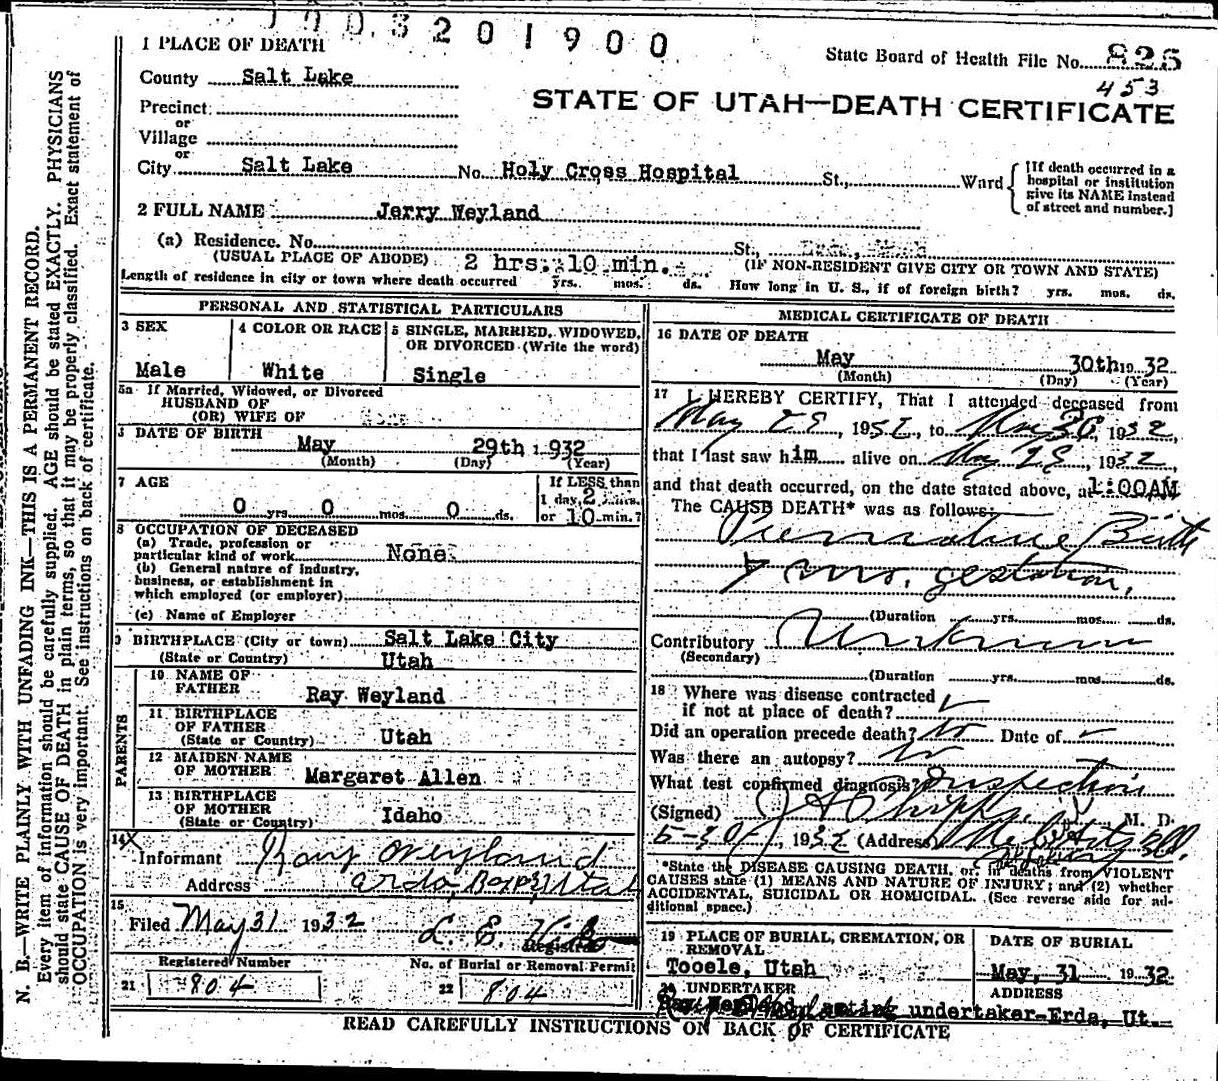 1003201900
1 PLACE OF DEATH
State Board of Health File No. 825
County Salt Lake
453
STATE OF UTAH—DEATH CERTIFICATE
Precinct
or
Village
or
City Salt Lake No. Holy Cross Hospital St., Ward
[If death occurred in a hospital or institution give its NAME instead of street and number.]
2 FULL NAME Jerry Weyland
(a) Residence. No. St.,
(USUAL PLACE OF ABODE) 2 hrs. 10 min. (IF NON-RESIDENT GIVE CITY OR TOWN AND STATE)
Length of residence in city or town where death occurred yrs. mos. ds. How long in U. S., if of foreign birth? yrs. mos. ds.
PERSONAL AND STATISTICAL PARTICULARS
3 SEX
Male
4 COLOR OR RACE
White
5 SINGLE, MARRIED, WIDOWED,
OR DIVORCED (Write the word)
Single
5a If Married, Widowed, or Divorced
HUSBAND OF
(OR) WIFE OF None
DATE OF BIRTH May 29th 1932
(Month) (Day) (Year)
7 AGE
0 yrs. 0 mos. 0 ds.
If LESS than
1 day, 2 hrs.
or 10 min.?
8 OCCUPATION OF DECEASED
(a) Trade, profession or
particular kind of work None
(b) General nature of industry,
business, or establishment in
which employed (or employer)
(c) Name of Employer
9 BIRTHPLACE (City or town) Salt Lake City
(State or Country) Utah
PARENTS
10 NAME OF
FATHER Ray Weyland
11 BIRTHPLACE
OF FATHER
(State or Country) Utah
12 MAIDEN NAME
OF MOTHER Margaret Allen
13 BIRTHPLACE
OF MOTHER
(State or Country) Idaho
14 X
Informant Ray Weyland
Address
15
Filed May 31 1932 L. E.
Registrar
Registered Number
21 804
No. of Burial or Removal Permit
22 804
MEDICAL CERTIFICATE OF DEATH
16 DATE OF DEATH
May 30th 1932
(Month) (Day) (Year)
17 I HEREBY CERTIFY, That I attended deceased from
May 29, 1932, to May 30, 1932,
that I last saw him alive on May 29, 1932,
and that death occurred, on the date stated above, at 1:00AM
The CAUSE DEATH* was as follows:
Premature Birth
mo. gestation,
(Duration yrs. mos. ds.
Contributory Unknown
(Secondary)
(Duration yrs. mos. ds.
18 Where was disease contracted
if not at place of death?
Did an operation precede death? No Date of
Was there an autopsy? No
What test confirmed diagnosis? Inspection
(Signed) M. D.
5-30, 1932 (Address)
*State the DISEASE CAUSING DEATH, or, in deaths from VIOLENT
CAUSES state (1) MEANS AND NATURE OF INJURY; and (2) whether
ACCIDENTAL, SUICIDAL OR HOMICIDAL. (See reverse side for ad-
ditional space.)
19 PLACE OF BURIAL, CREMATION, OR
REMOVAL
Tooele, Utah
DATE OF BURIAL
May, 31 1932
20 UNDERTAKER
ADDRESS
Ray Weyland acting undertaker-Erda, Ut.
READ CAREFULLY INSTRUCTIONS ON BACK OF CERTIFICATE
N. B.—WRITE PLAINLY WITH UNFADING INK—THIS IS A PERMANENT RECORD.
Every item of information should be carefully supplied. AGE should be stated EXACTLY. PHYSICIANS
should state CAUSE OF DEATH in plain terms, so that it may be properly classified. Exact statement of
OCCUPATION is very important. See instructions on back of certificate.